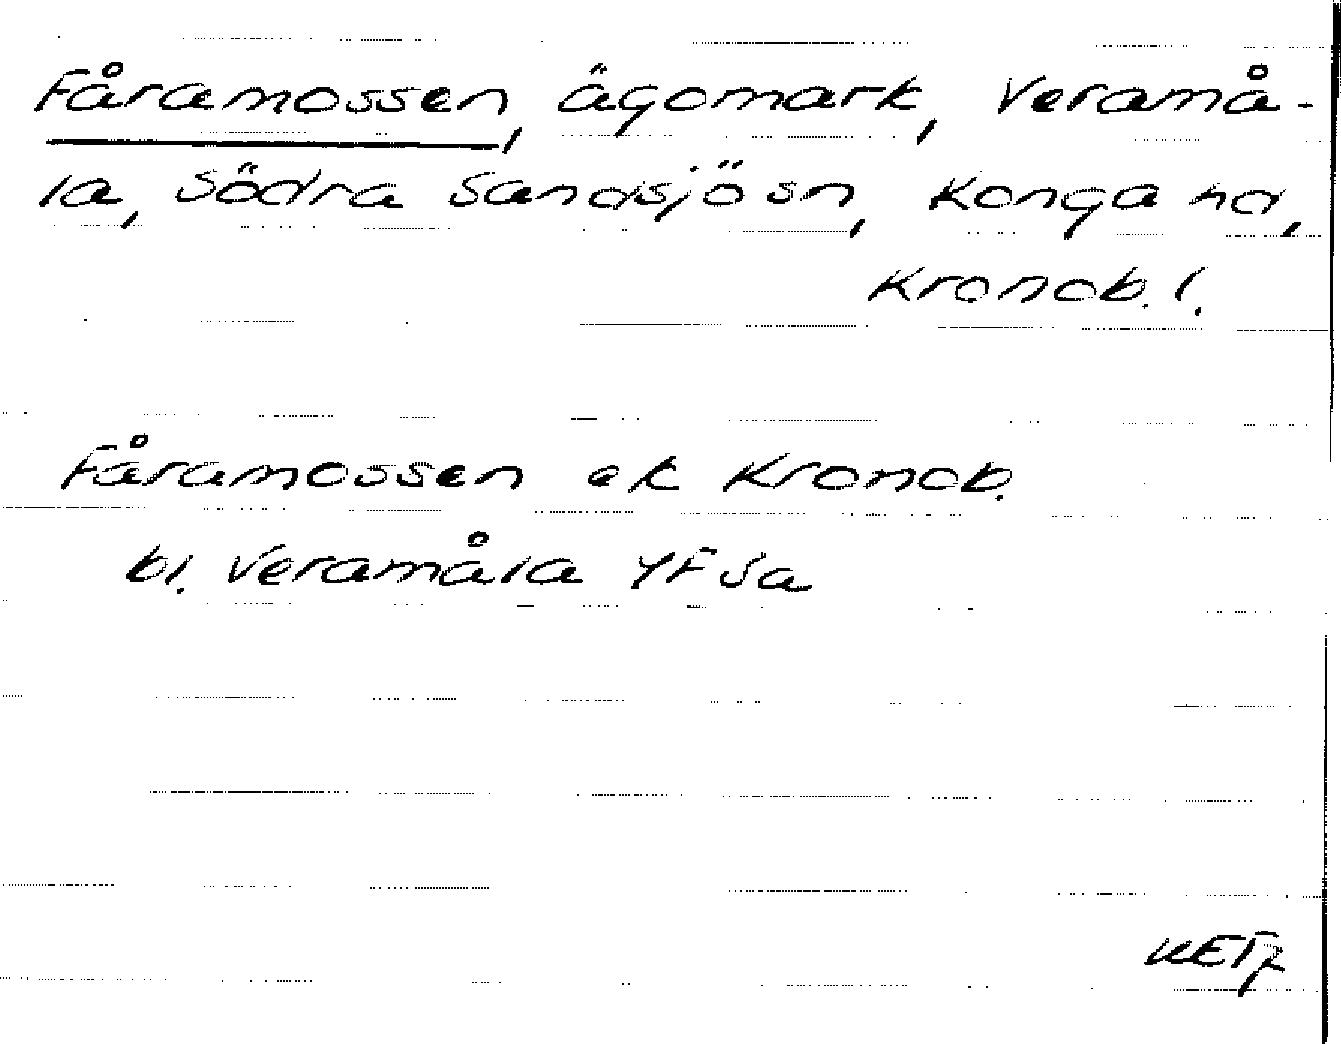 Fåramossen, ägomark, Veramå-
la, Södra Sandsjö sn, Konga hd,
Kronob. l.
Fåramossen ek Kronob.
bl. Veramåla YF Sa